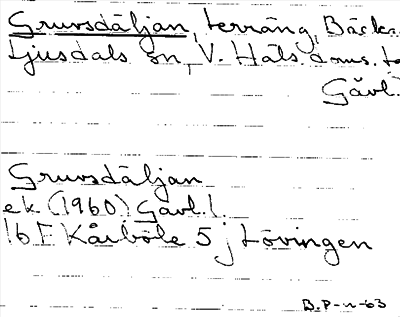 Gruvsdäljan, terräng, Bäcks
Ljusdals sn, V. Häls. doms.
Gävl.
Gruvsdäljan
ek (1960) Gävl.l.
16 F Kårböle 5 j Lövingen
B.P-n-63